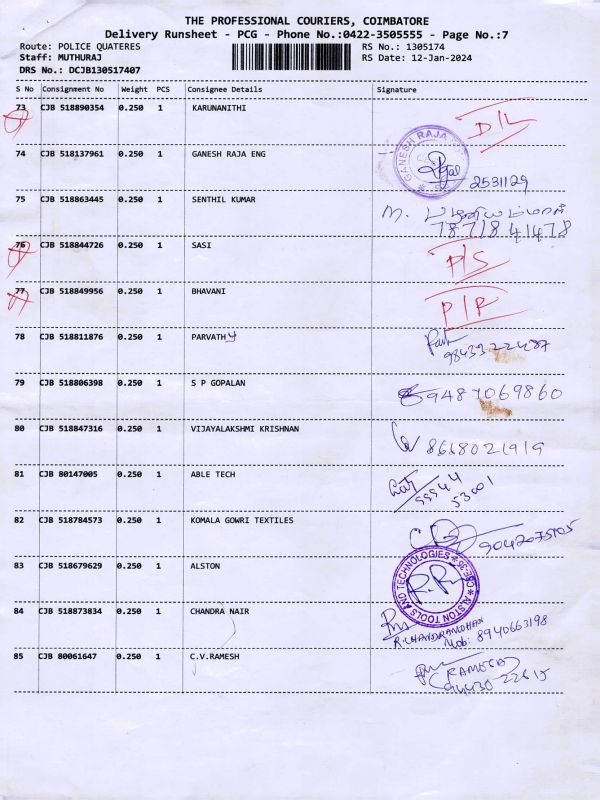 THE PROFESSIONAL COURIERS, COIMBATORE
Delivery Runsheet - PCG - Phone No.:0422-3505555 - Page No.:7
Route: POLICE QUATERES RS No.: 1305174
Staff: MUTHURAJ RS Date: 12-Jan-2024
DRS No.: DCJB130517407
S No Consignment No Weight PCS Consignee Details Signature
73 CJB 518890354 0.250 1 KARUNANITHI D/L
74 CJB 518137961 0.250 1 GANESH RAJA ENG GANESH RAJA 2531129
75 CJB 518863445 0.250 1 SENTHIL KUMAR M.
7871841478
76 CJB 518844726 0.250 1 SASI P/S
77 CJB 518849956 0.250 1 BHAVANI P/R
78 CJB 518811876 0.250 1 PARVATHY
79 CJB 518806398 0.250 1 S P GOPALAN 9487069860
80 CJB 518847316 0.250 1 VIJAYALAKSHMI KRISHNAN 8668021919
81 CJB 80147005 0.250 1 ABLE TECH
82 CJB 518784573 0.250 1 KOMALA GOWRI TEXTILES
83 CJB 518679629 0.250 1 ALSTON ALSTON TOOLS AND TECHNOLOGIES CBE-35
84 CJB 518873834 0.250 1 CHANDRA NAIR
R.CHANDRAMOHAN
Mob: 8940663198
85 CJB 80061647 0.250 1 C.V.RAMESH RAMESH